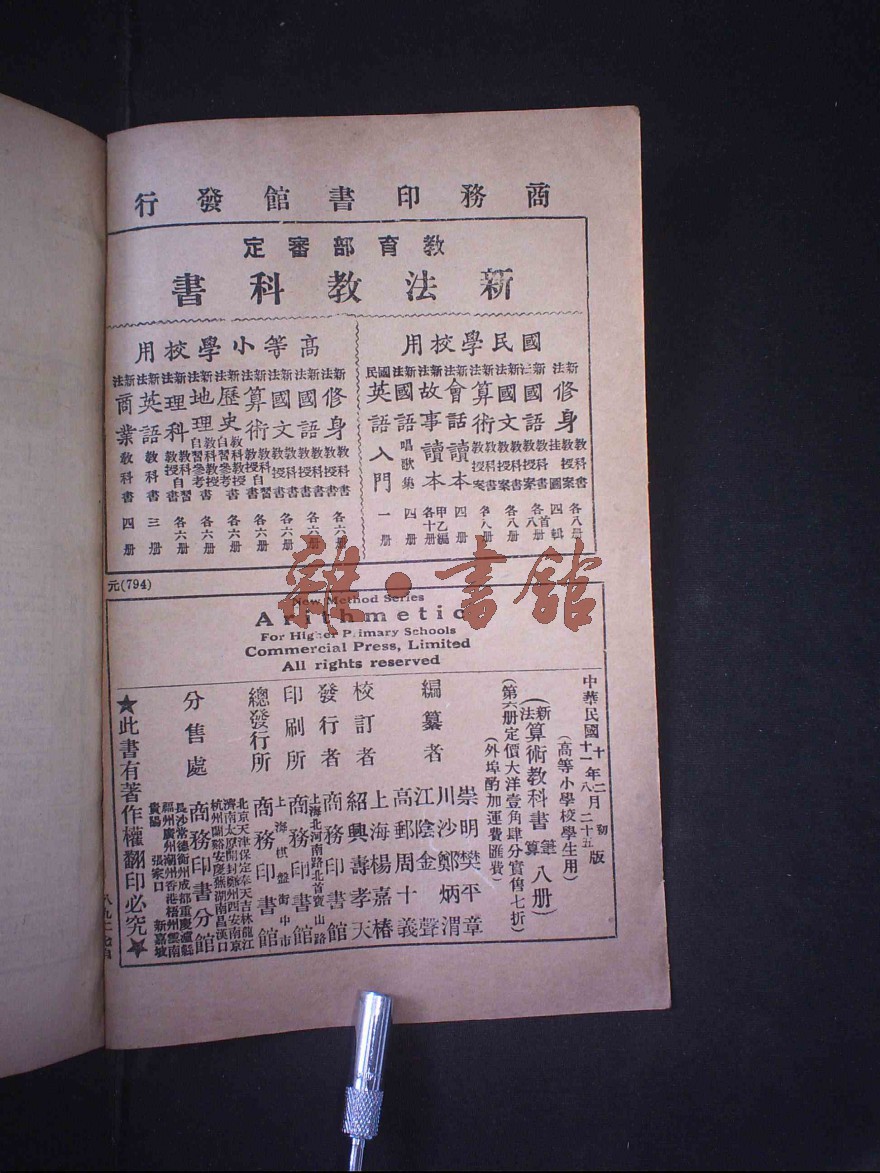 商務印書館發行
教育部審定
新法教科書
國民學校用
新法修身教科書教授案各八册掛圖四輯
新法國語教科書教授案
新法國文教科書教授案各八册
新法算術教科書教授案各八册
新法會話讀本四册
新法故事讀本甲乙編各十册
新法國語唱歌集四册
國民英語入門一册
高等小學校用
新法修身教科書教授書各六册
新法國語教科書教授書各六册
新法國文教科書教授書各六册
新法算術教科書教授書自習
新法歷史教科書教授書自習參考書各六册
新法地理教科書教授書自習參考書各六册
新法理科教科書教授書自習各六册
新法英語教科書三册
新法商業教科書四册
元(794)
雜·書館
New Method Series
Arithmetic
For Higher Primary Schools
Commercial Press, Limited
All rights reserved
中華民國十年二月初版
十一年八月二五版
(高等小學校學生用)
(新法算術教科書筆算八册)
(第六册定價大洋壹角肆分實售七折)
(外埠酌加運費匯費)
編纂者
崇明樊平章
川沙鄭炳渭
江陰金聲
高郵周十義
校訂者
上海楊嘉椿
紹興壽孝天
發行者
商務印書館
印刷所
上海北河南路北首寶山路
商務印書館
總發行所
上海棋盤街中市
商務印書館
分售處
北京天津保定奉天吉林龍江
濟南太原開封鄭州西安南京
杭州蘭谿安慶蕪湖南昌漢口
商務印書分館
長沙常德衡州成都重慶瀘縣
福州廣州潮州香港梧州雲南
貴陽 張家口 新嘉坡
★此書有著作權翻印必究★